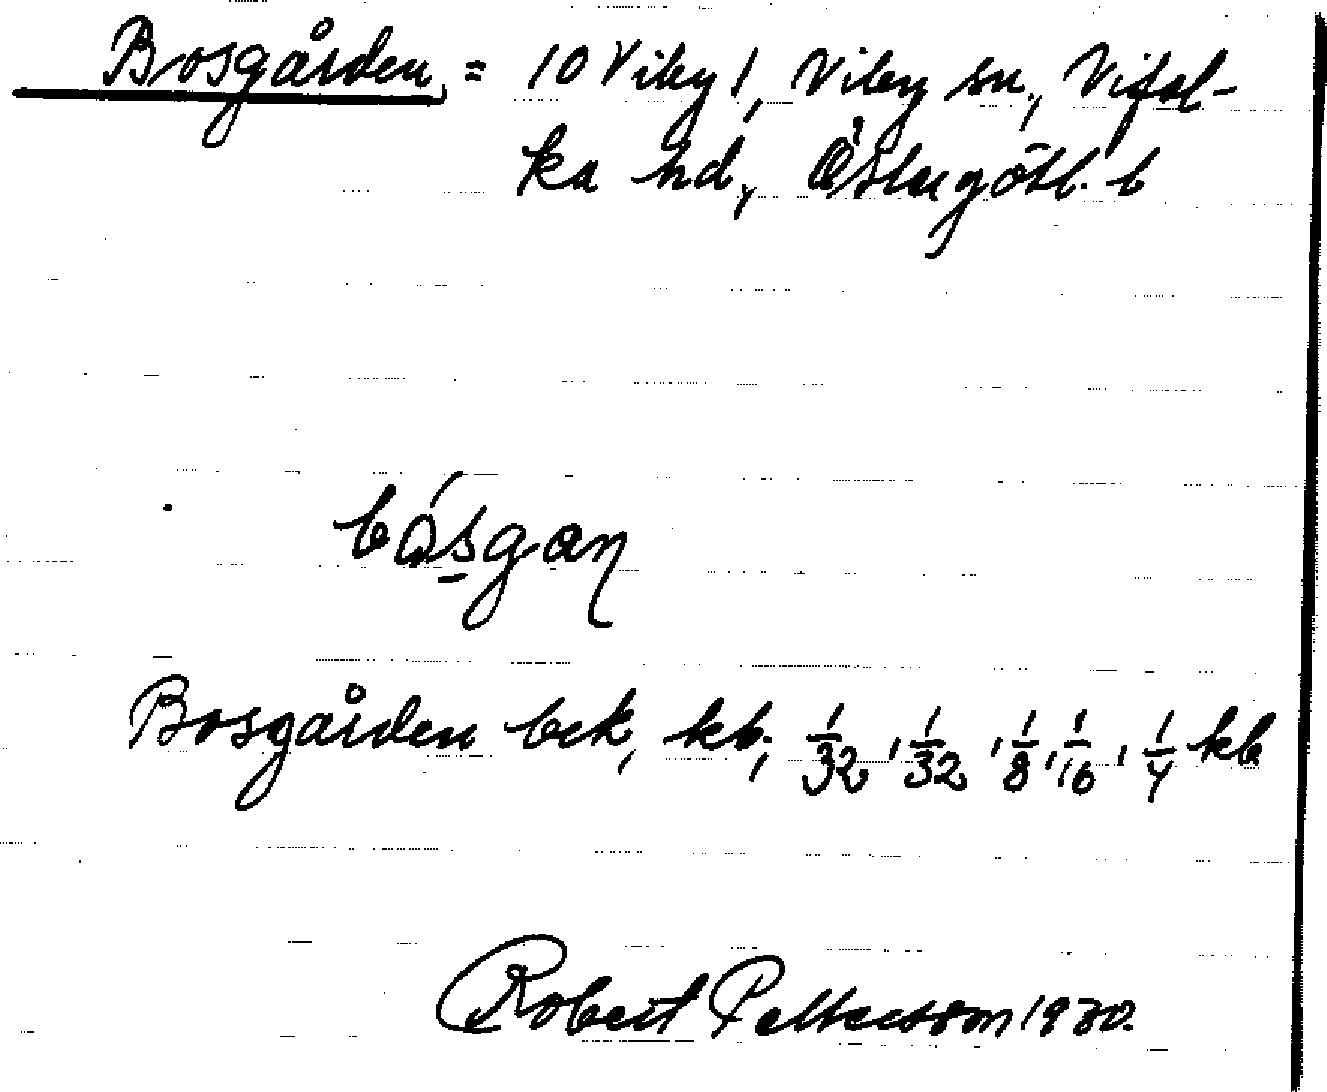 Bosgården = 10 Viby 1, Viby sn., Vifol-
ka hd, Östergötl. l
bósgan
Bosgården bek, kb; 1/32, 1/32, 1/8, 1/16, 1/4 kb
Robert Pettersson 1930.